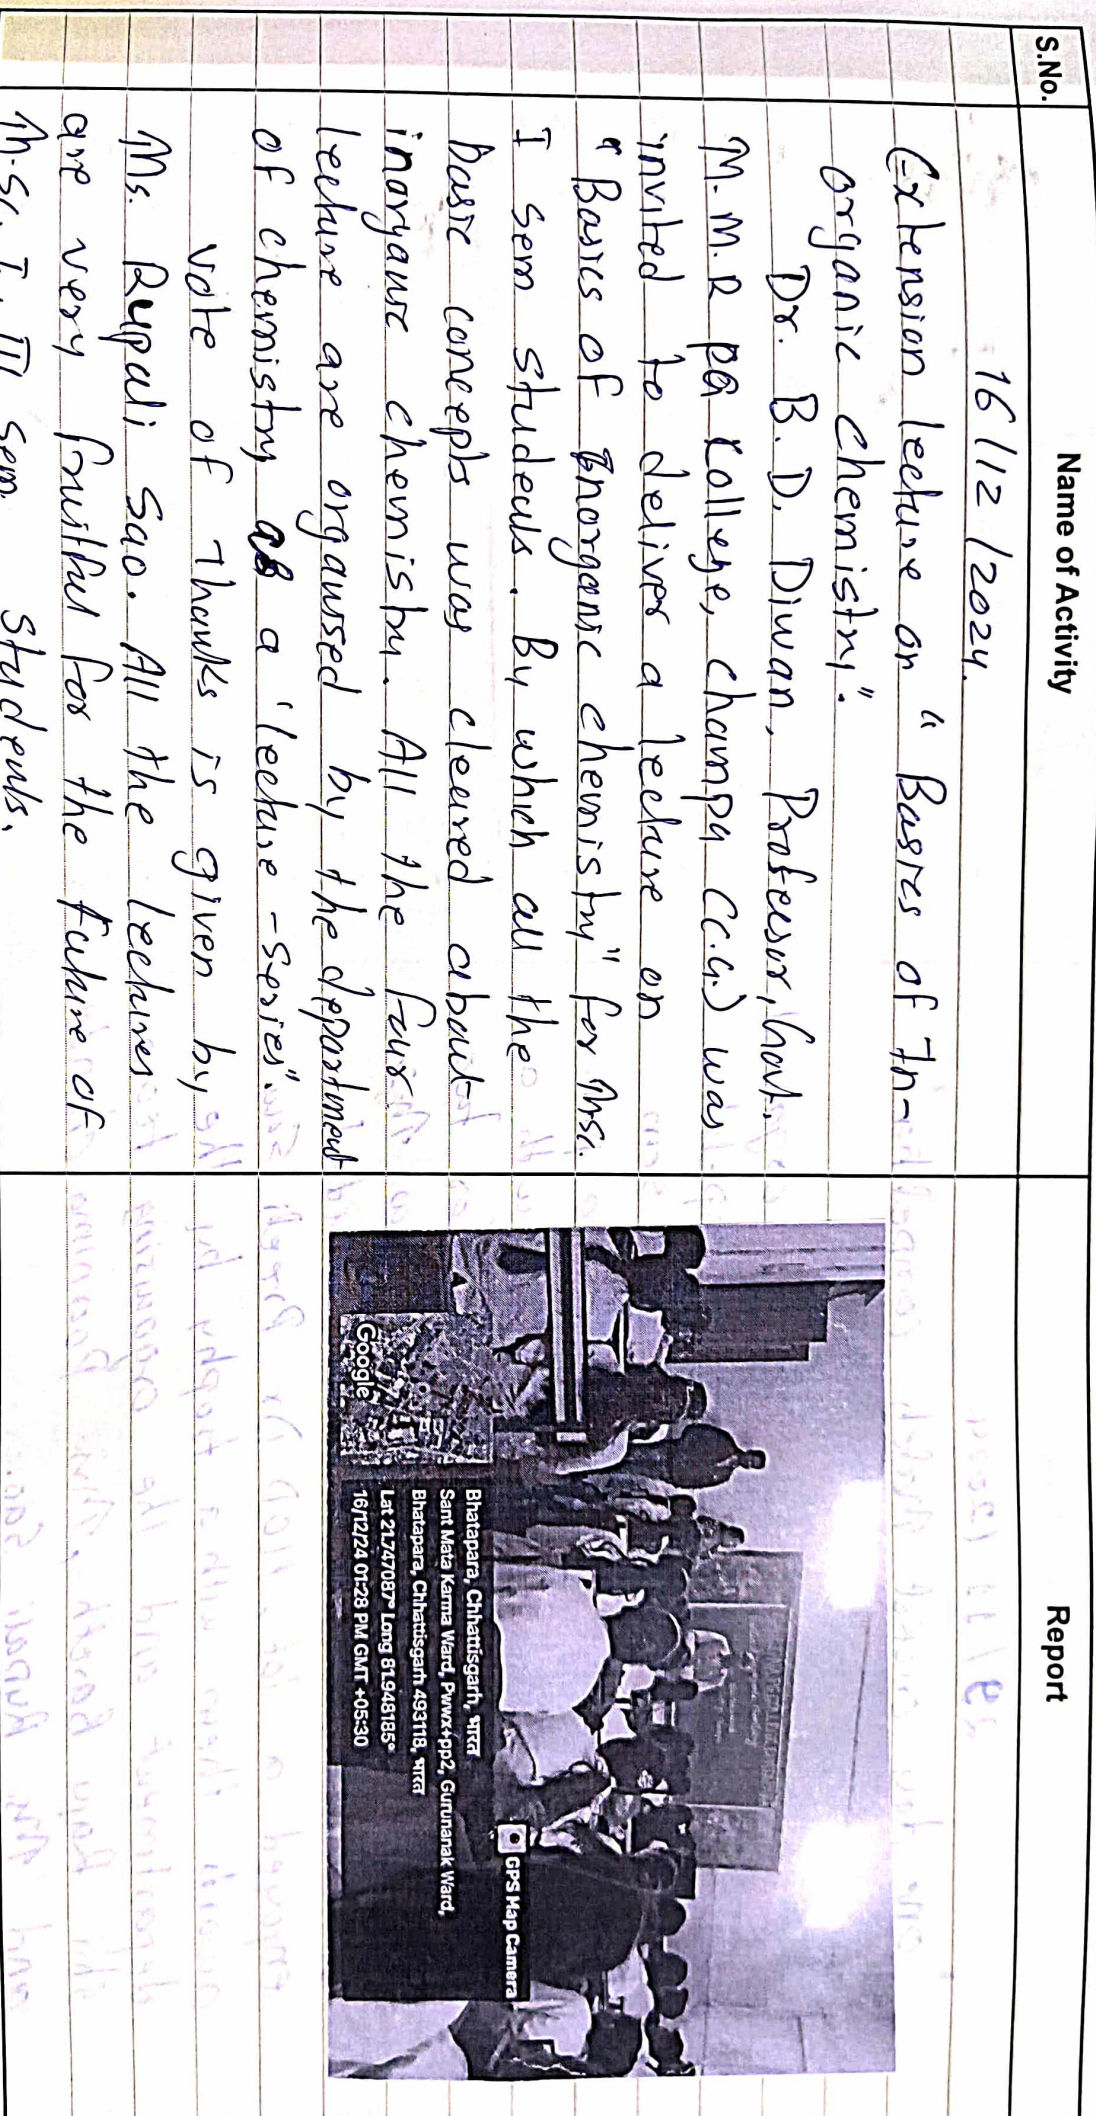 S.No.
Name of Activity
Report
16/12/2024.
Extension lecture on "Basics of In-
organic chemistry".
Dr. B. D. Diwan, Professor, Govt.
M. M. R PG College, champa (C.G.) was
invited to deliver a lecture on
"Basics of Inorganic chemistry" for Msc.
I sem students. By which all the
basic concepts was cleared about
inorganic chemistry. All the four
lecture are organised by the department
of chemistry as a 'lecture-series".
Vote of Thanks is given by
Ms. Rupali Sao. All the lectures
are very fruitful for the future of
M.Sc. I, III sem. Students.
GPS Map Camera
Bhatapara, Chhattisgarh, भारत
Sant Mata Karma Ward, Pwwx+pp2, Gurunanak Ward,
Bhatapara, Chhattisgarh 493118, भारत
Lat 21.747087° Long 81.948185°
16/12/24 01:28 PM GMT +05:30
Google